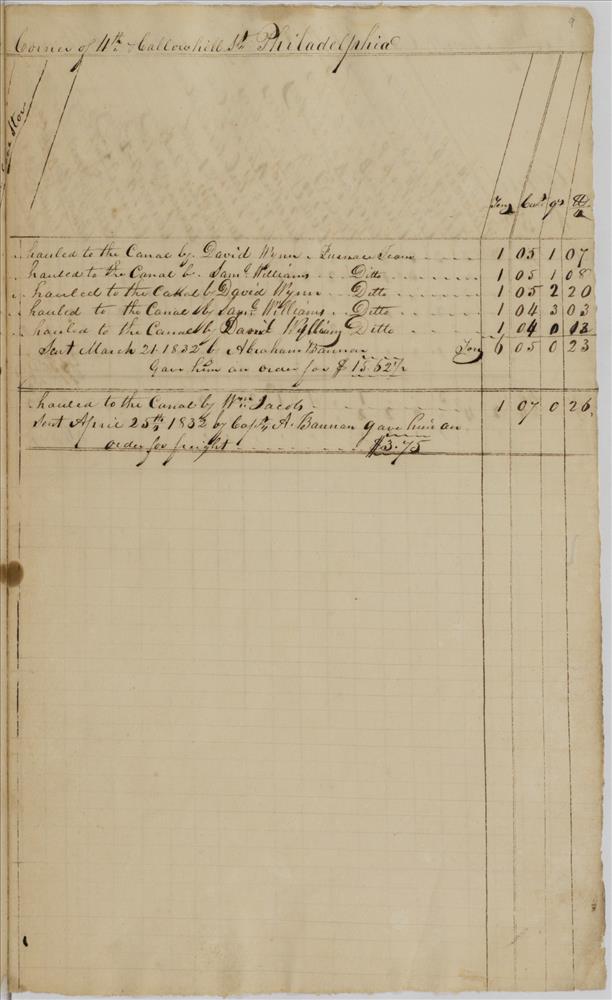 9
Corner of 4th & Callowhill St Philadelphia
Tons Cwt qr lb
hauled to the Canal by David Wynn Furnace Team 1 05 1 07
hauled to the Canal by Saml Williams Ditto 1 05 1 08
hauled to the Canal by David Wynn Ditto 1 05 2 20
hauled to the Canal by Saml Williams Ditto 1 04 3 03
hauled to the Canal by Ditto 1 04 0 13
Sent March 21. 1832 by Abraham Bannan Tons 6 05 0 23
Gave him an order for $ 15.62½
hauled to the Canal by Wm Jacobs 1 07 0 26
Sent April 25th 1832 by Capt A. Bannan gave him an
order for freight $3.75